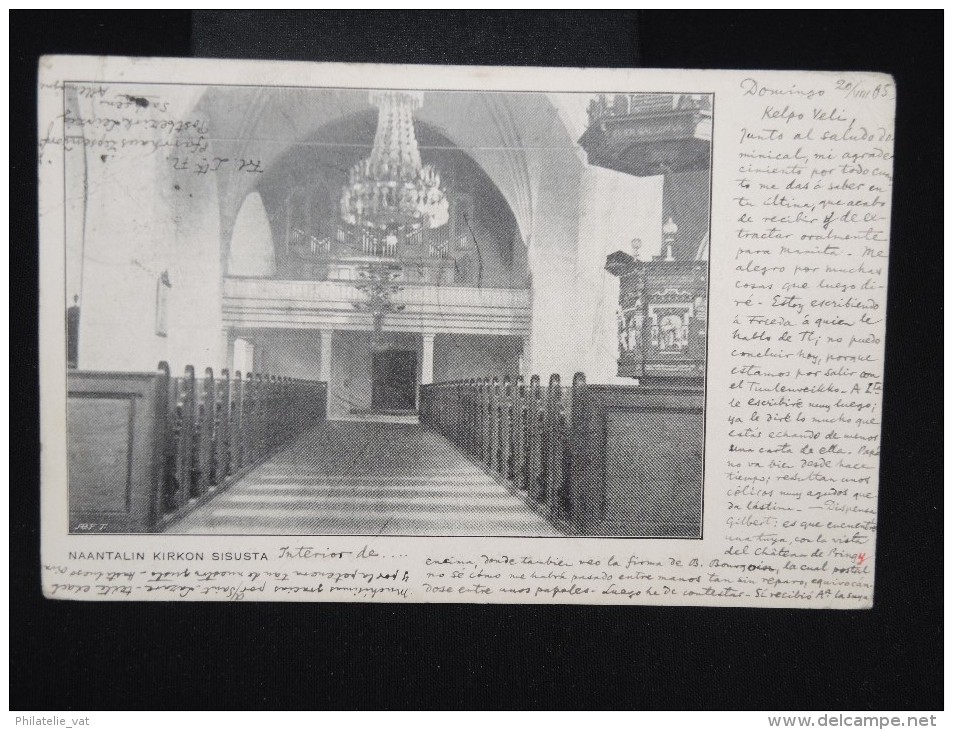 Domingo 20/VIII 05
Kelpo Veli,
Junto al saludo do
minical, mi agrade
cimiento por todo cuan
to me das á saber en
tu última, que acabo
de recibir y de ex-
tractar oralmente
para Mamita. - Me
alegro por muchas
cosas que luego di-
ré - Estoy escribiendo
á Frieda á quien le
hablo de Ti; no puedo
concluir hoy, porque
estamos por salir con
el Tuulenveikko. - A
le escribiré muy luego;
ya le diré lo mucho que
estás echando de menos
una carta de ella. Papá
no va bien desde hace
tiempo; resultan unos
cólicos muy agudos que
da lástima. - Dispensa
Gilbert: es que encuentro
una tuya, con la vista
del Château de
NAANTALIN KIRKON SISUSTA Interior de ....
encina, donde tambien veo la firma de B. la cual postal
no sé cómo me habrá pasado entre manos tan sin reparo, equivocán
dose entre unos papeles. - Luego he de contestar. - Si recibió Aª la suya
y por la
Muchísimas gracias por Saint Lazare
Allemagne
Leipzig
Philatelie_vat
http://www.delcampe.net